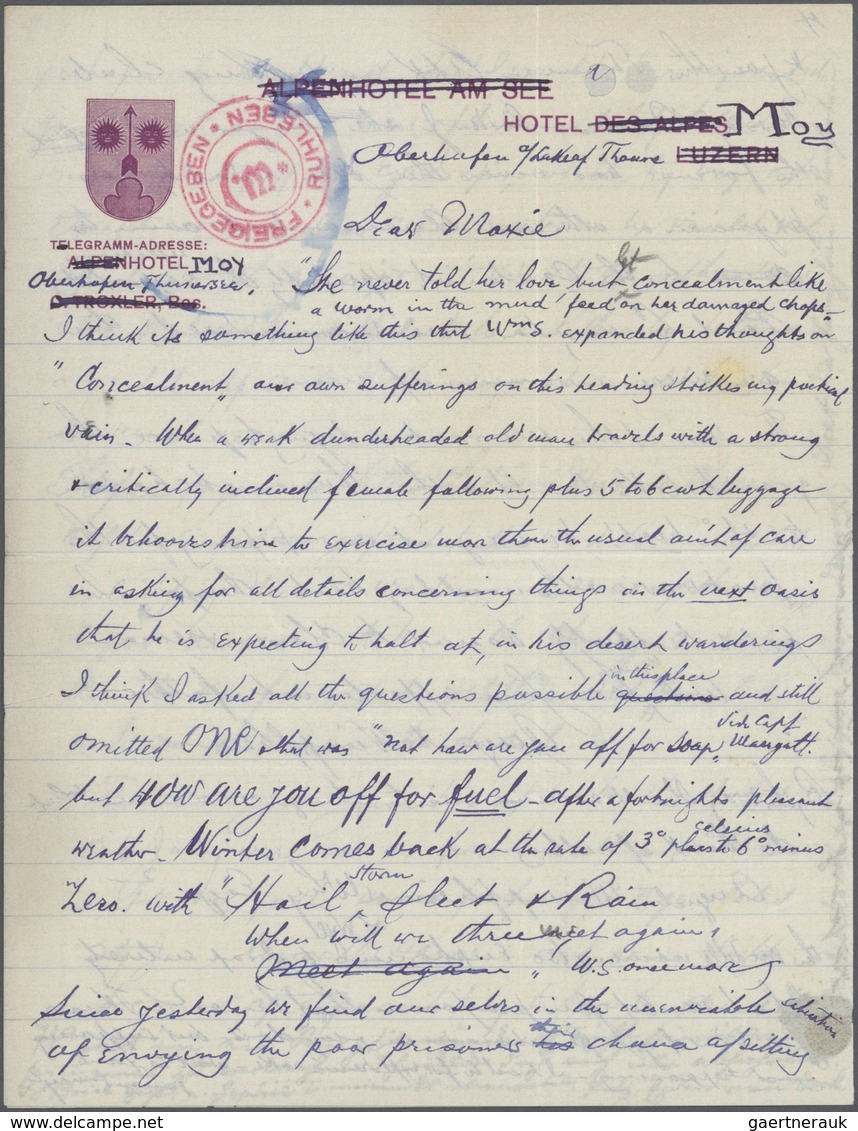 ALPENHOTEL AM SEE
HOTEL DES ALPES Moy
Oberhofen o/Lake of Thoune LUZERN
RUHLEBEN * FREIGEGEBEN *
TELEGRAMM-ADRESSE:
ALPENHOTEL MOY
Oberhofen Thunersee.
C. TROXLER, Bes.
Dear Moxie
"She never told her love but let concealment like
a worm in the mud feed on her damaged chops"
I think its something like this that Wm S. expanded his thoughts on
"Concealment" our own sufferings on this heading strikes my poetical
vein. When a weak dunderheaded old man travels with a strong
& critically inclined female following plus 5 to 6 cwt luggage
it behooves him to exercise more than the usual am't of care
in asking for all details concerning things in the next oasis
that he is expecting to halt at, in his desert wanderings
I think I asked all the questions possible in this place questions and still
omitted ONE & that was "not how are you off for soap" vide Capt
but HOW are you off for fuel - after a fortnights pleasant
weather. Winter comes back at the rate of 3° plus to 6° minus celsius
Zero. with "Hail, storm Sleet & Rain
When will we three meet again,
Meet again" W.S. once more
Since yesterday we find our selves in the unenviable situation
of envying the poor prisoners his their chance of sitting
gaertnerauk
delcampe.net